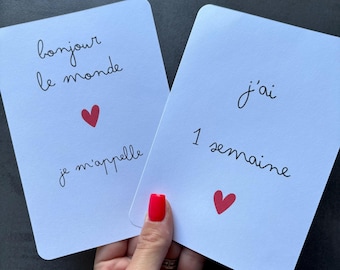 bonjour
le monde
je m'appelle
j'ai
1 semaine